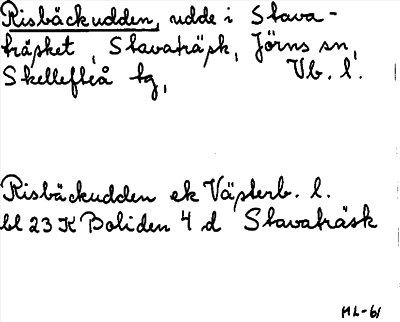 Risbäckudden, udde i Stava-
träsket, Stavaträsk, Jörns sn,
Skellefteå tg, Vb. l.
Risbäckudden ek Västerb. l.
bl 23 K Boliden 4 d Stavaträsk
ML-61